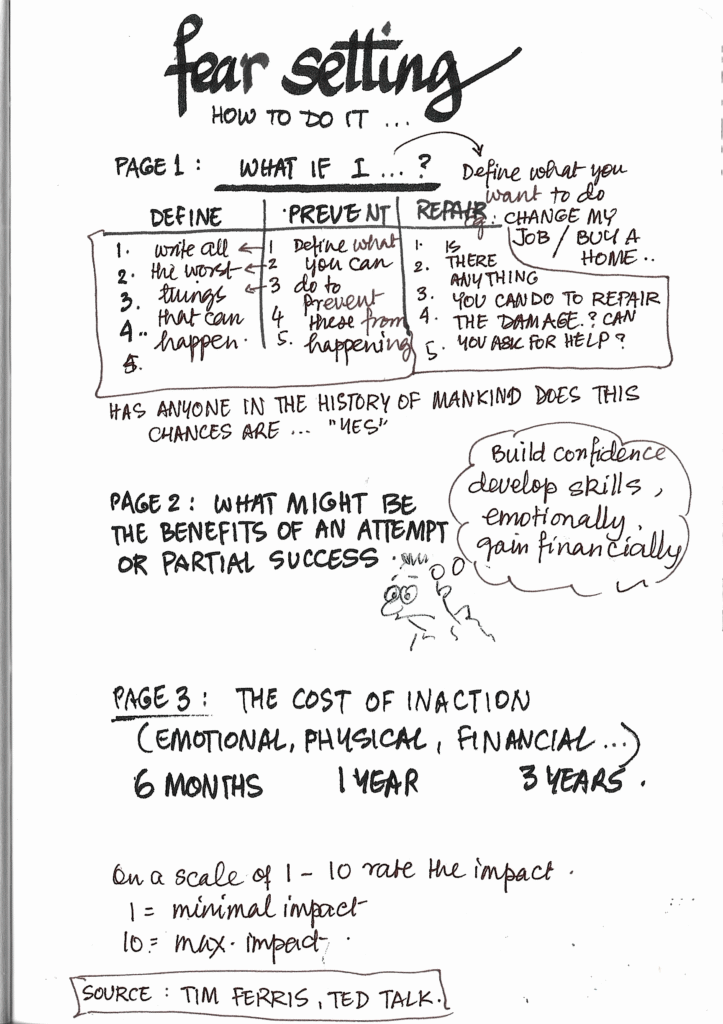 fear setting
HOW TO DO IT ...
PAGE 1 : WHAT IF I ... ?
Define what you
want to do
eg: CHANGE MY
JOB / BUY A
HOME ..
DEFINE
1. write all
2. the worst
3. things
4.. that can
5. happen.
PREVENT
1 Define what
2 you can
3 do to
prevent
4 these from
5. happening
REPAIR
1. IS
2. THERE
ANYTHING
3. YOU CAN DO TO REPAIR
4. THE DAMAGE.? CAN
5. YOU ASK FOR HELP?
HAS ANYONE IN THE HISTORY OF MANKIND DOES THIS
CHANCES ARE ... "YES"
PAGE 2 : WHAT MIGHT BE
THE BENEFITS OF AN ATTEMPT
OR PARTIAL SUCCESS
Build confidence
develop skills,
emotionally,
gain financially
PAGE 3 : THE COST OF INACTION
(EMOTIONAL, PHYSICAL, FINANCIAL ...)
6 MONTHS 1 YEAR 3 YEARS.
On a scale of 1 - 10 rate the impact.
1 = minimal impact
10 = max. impact.
SOURCE : TIM FERRIS, TED TALK.